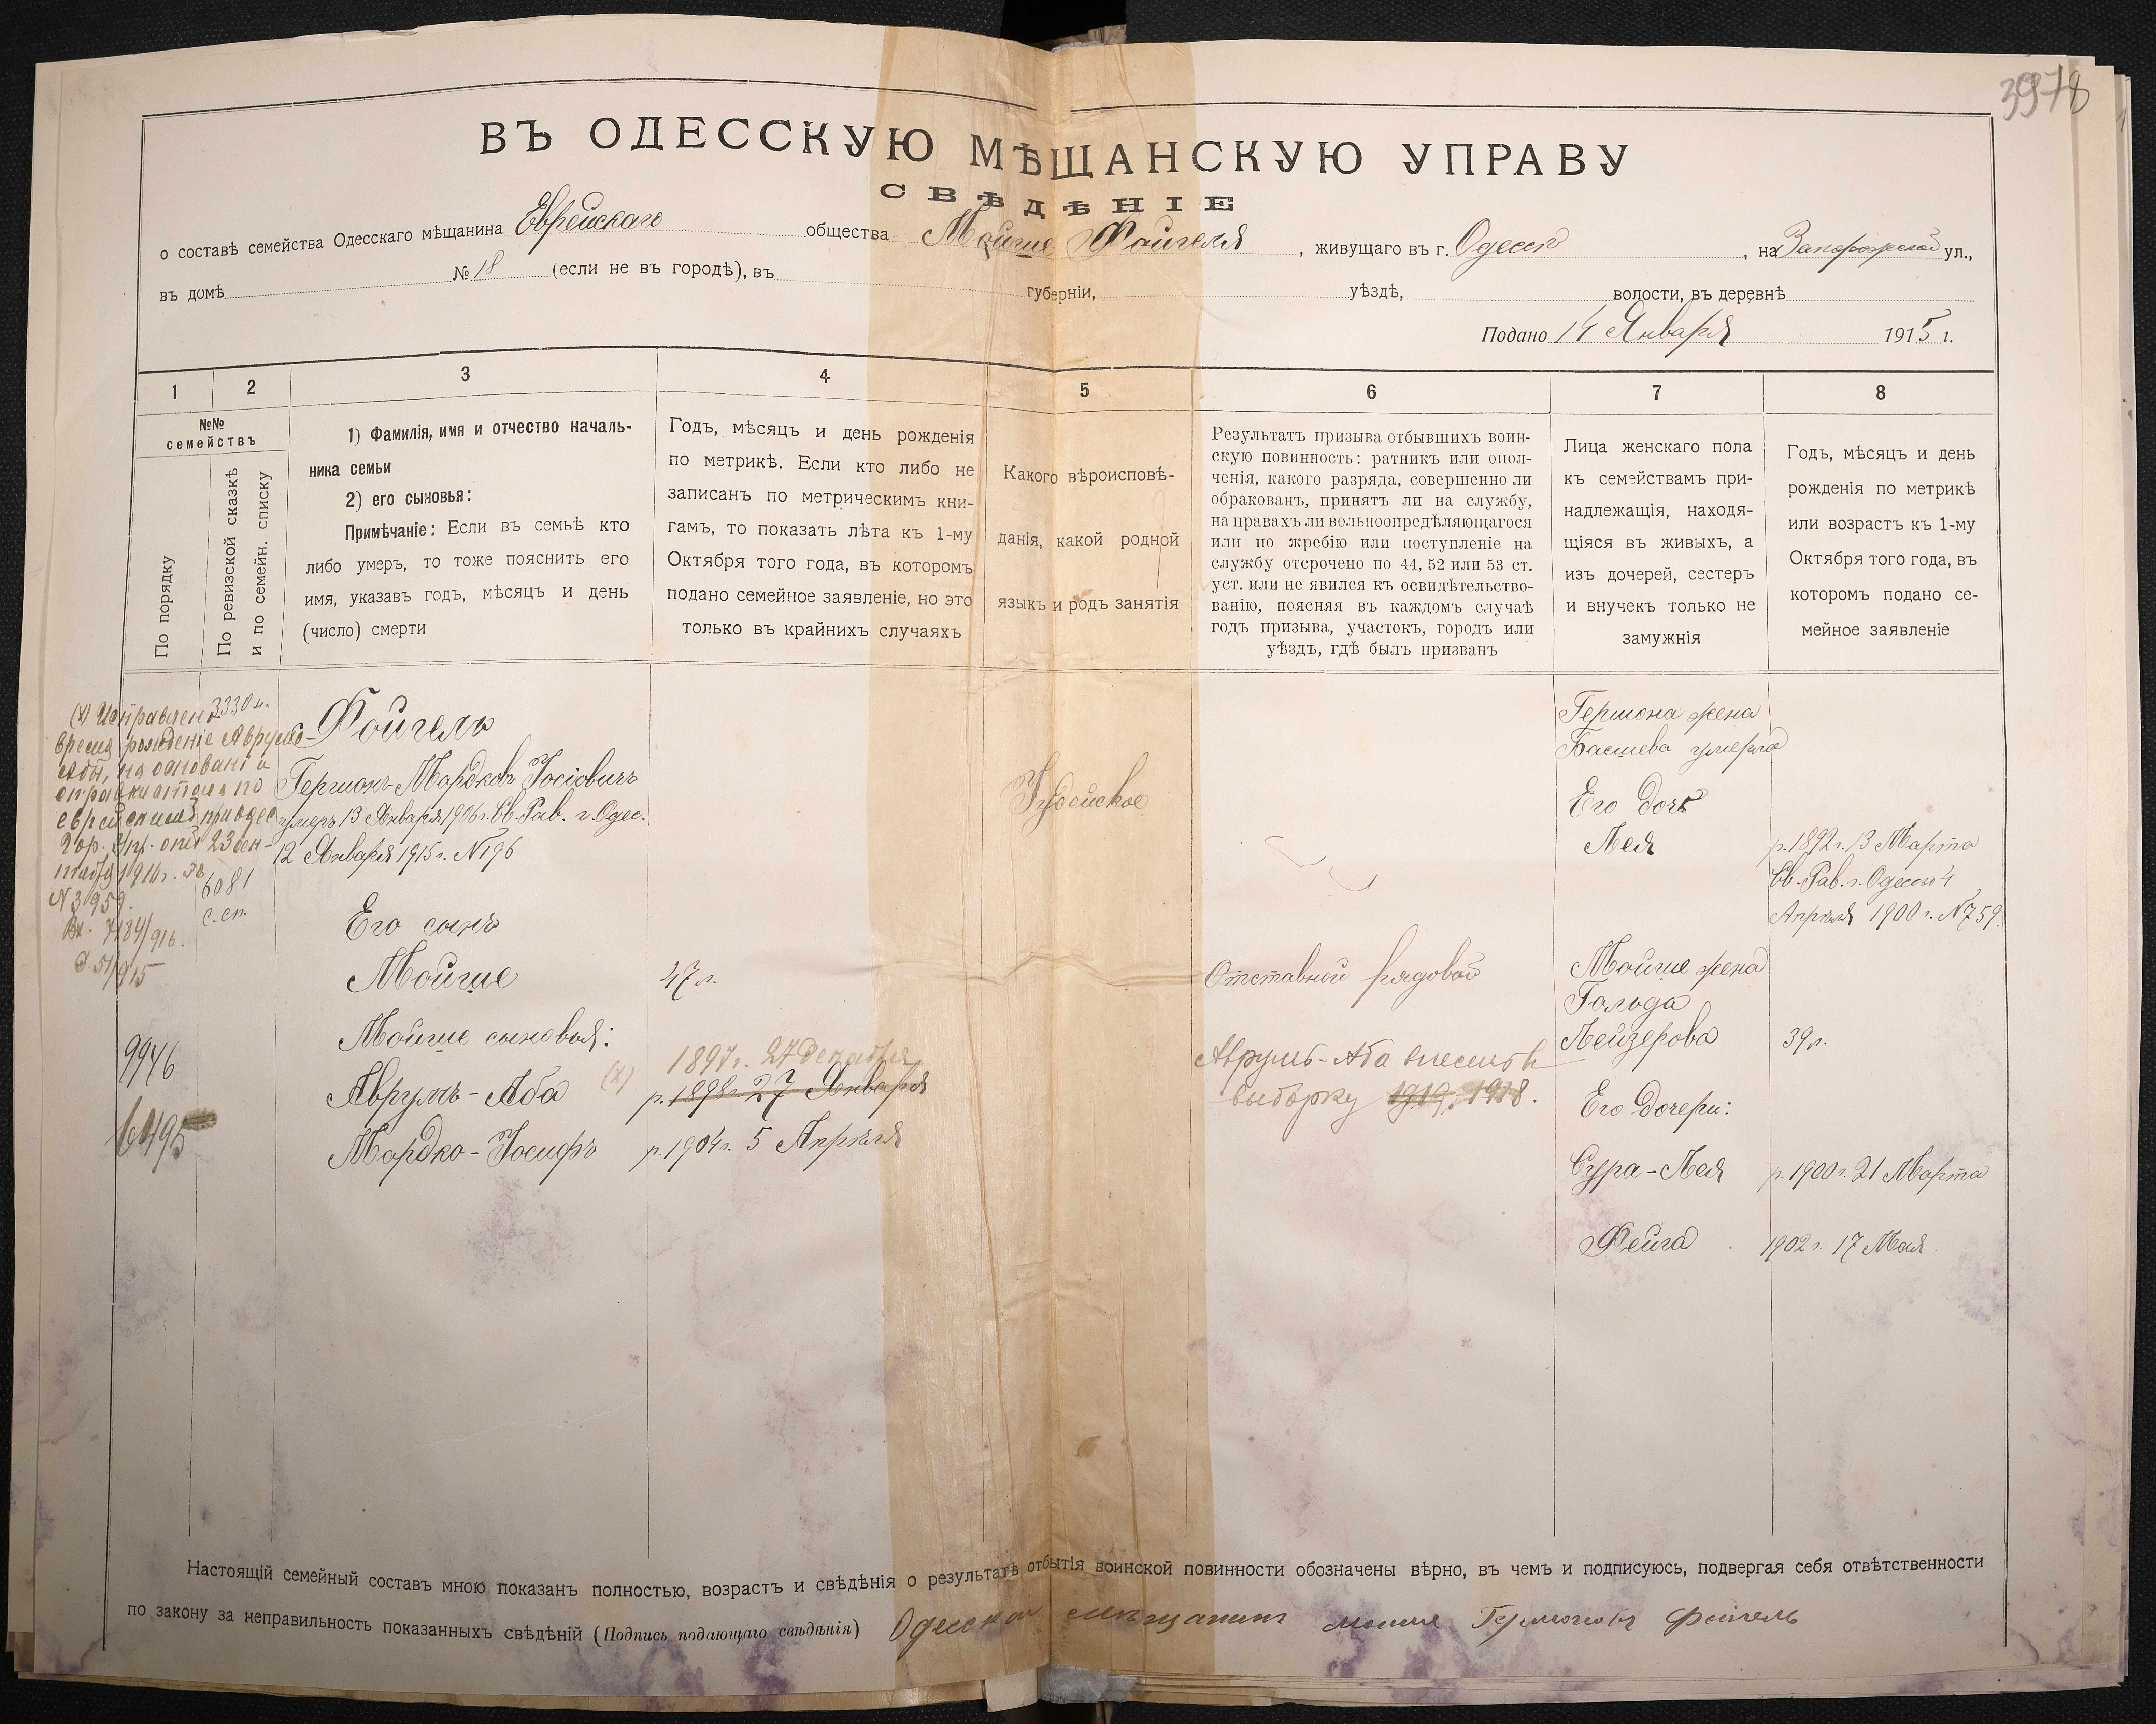 3978
ВЪ ОДЕССКУЮ МѢЩАНСКУЮ УПРАВУ
СВѢДѢНІЕ
о составѣ семейства Одесскаго мѣщанина Еврейскаго общества Мойше Фойгеля, живущаго въ г. Одессѣ, на Запорожской ул.,
въ домѣ № 18 (если не въ городѣ), въ губерніи, уѣздѣ, волости, въ деревнѣ
Подано 14 Января 1915 г.
1 2 3 4 5 6 7 8
№№
семействъ
По порядку
По ревизской сказкѣ
и по семейн. списку
1) Фамилія, имя и отчество началь-
ника семьи
2) его сыновья:
Примѣчаніе: Если въ семьѣ кто
либо умеръ, то тоже пояснить его
имя, указавъ годъ, мѣсяцъ и день
(число) смерти
Годъ, мѣсяцъ и день рожденія
по метрикѣ. Если кто либо не
записанъ по метрическимъ кни-
гамъ, то показать лѣта къ 1-му
Октября того года, въ которомъ
подано семейное заявленіе, но это
только въ крайнихъ случаяхъ
Какого вѣроисповѣ-
данія, какой родной
языкъ и родъ занятія
Результатъ призыва отбывшихъ воин-
скую повинность: ратникъ или опол-
ченія, какого разряда, совершенно ли
обракованъ, принятъ ли на службу,
на правахъ ли вольноопредѣляющагося
или по жребію или поступленіе на
службу отсрочено по 44, 52 или 53 ст.
уст. или не явился къ освидѣтельство-
ванію, поясняя въ каждомъ случаѣ
годъ призыва, участокъ, городъ или
уѣздъ, гдѣ былъ призванъ
Лица женскаго пола
къ семействамъ при-
надлежащія, находя-
щіяся въ живыхъ, а
изъ дочерей, сестеръ
и внучекъ только не
замужнія
Годъ, мѣсяцъ и день
рожденія по метрикѣ
или возрастъ къ 1-му
Октября того года, въ
которомъ подано се-
мейное заявленіе
(х) Исправлено
время рожденіе Аврумъ-
Абы, на основаніи
справки стола по
еврейскимъ при Одес
Гор. Упр. отъ 23 сен-
тября 1916 г. за
N 3959.
Вх. 7184/916.
Д. 51/915
3330
6081
с. сп.
9946
6495
Фойгель
Гершонъ Мордковъ Іосіовичъ
умеръ 13 Января 1906 г. Св. Рав. г. Одес.
12 Января 1915 г. N 196
Его сынъ
Мойше 47 л.
Мойше сыновья:
(х) 1897 г. 27 Декабря
Аврумъ-Аба р. 1898 г. 27 Января
Мордко-Іосифъ р. 1904 г. 5 Апрѣля
Іудейское
Отставной рядовой
Аврумъ-Аба внесенъ въ
выборку 1919. 1918.
Гершона жена
Басшева умерла
Его дочь
Лея р. 1892 г. 13 Марта
Св. Рав. г. Одессы 4
Апрѣля 1900 г. N 759.
Мойше жена
Гольда
Лейзерова 39 л.
Его дочери:
Сура-Лея р. 1900 г. 21 Марта
Фейга 1902 г. 17 Мая
Настоящій семейный составъ мною показанъ полностью, возрастъ и свѣдѣнія о результатѣ отбытія воинской повинности обозначены вѣрно, въ чемъ и подписуюсь, подвергая себя отвѣтственности
по закону за неправильность показанныхъ свѣдѣній (Подпись подающаго свѣдѣнія) Одесской мѣщанинъ мошие Гершоновъ фойгель